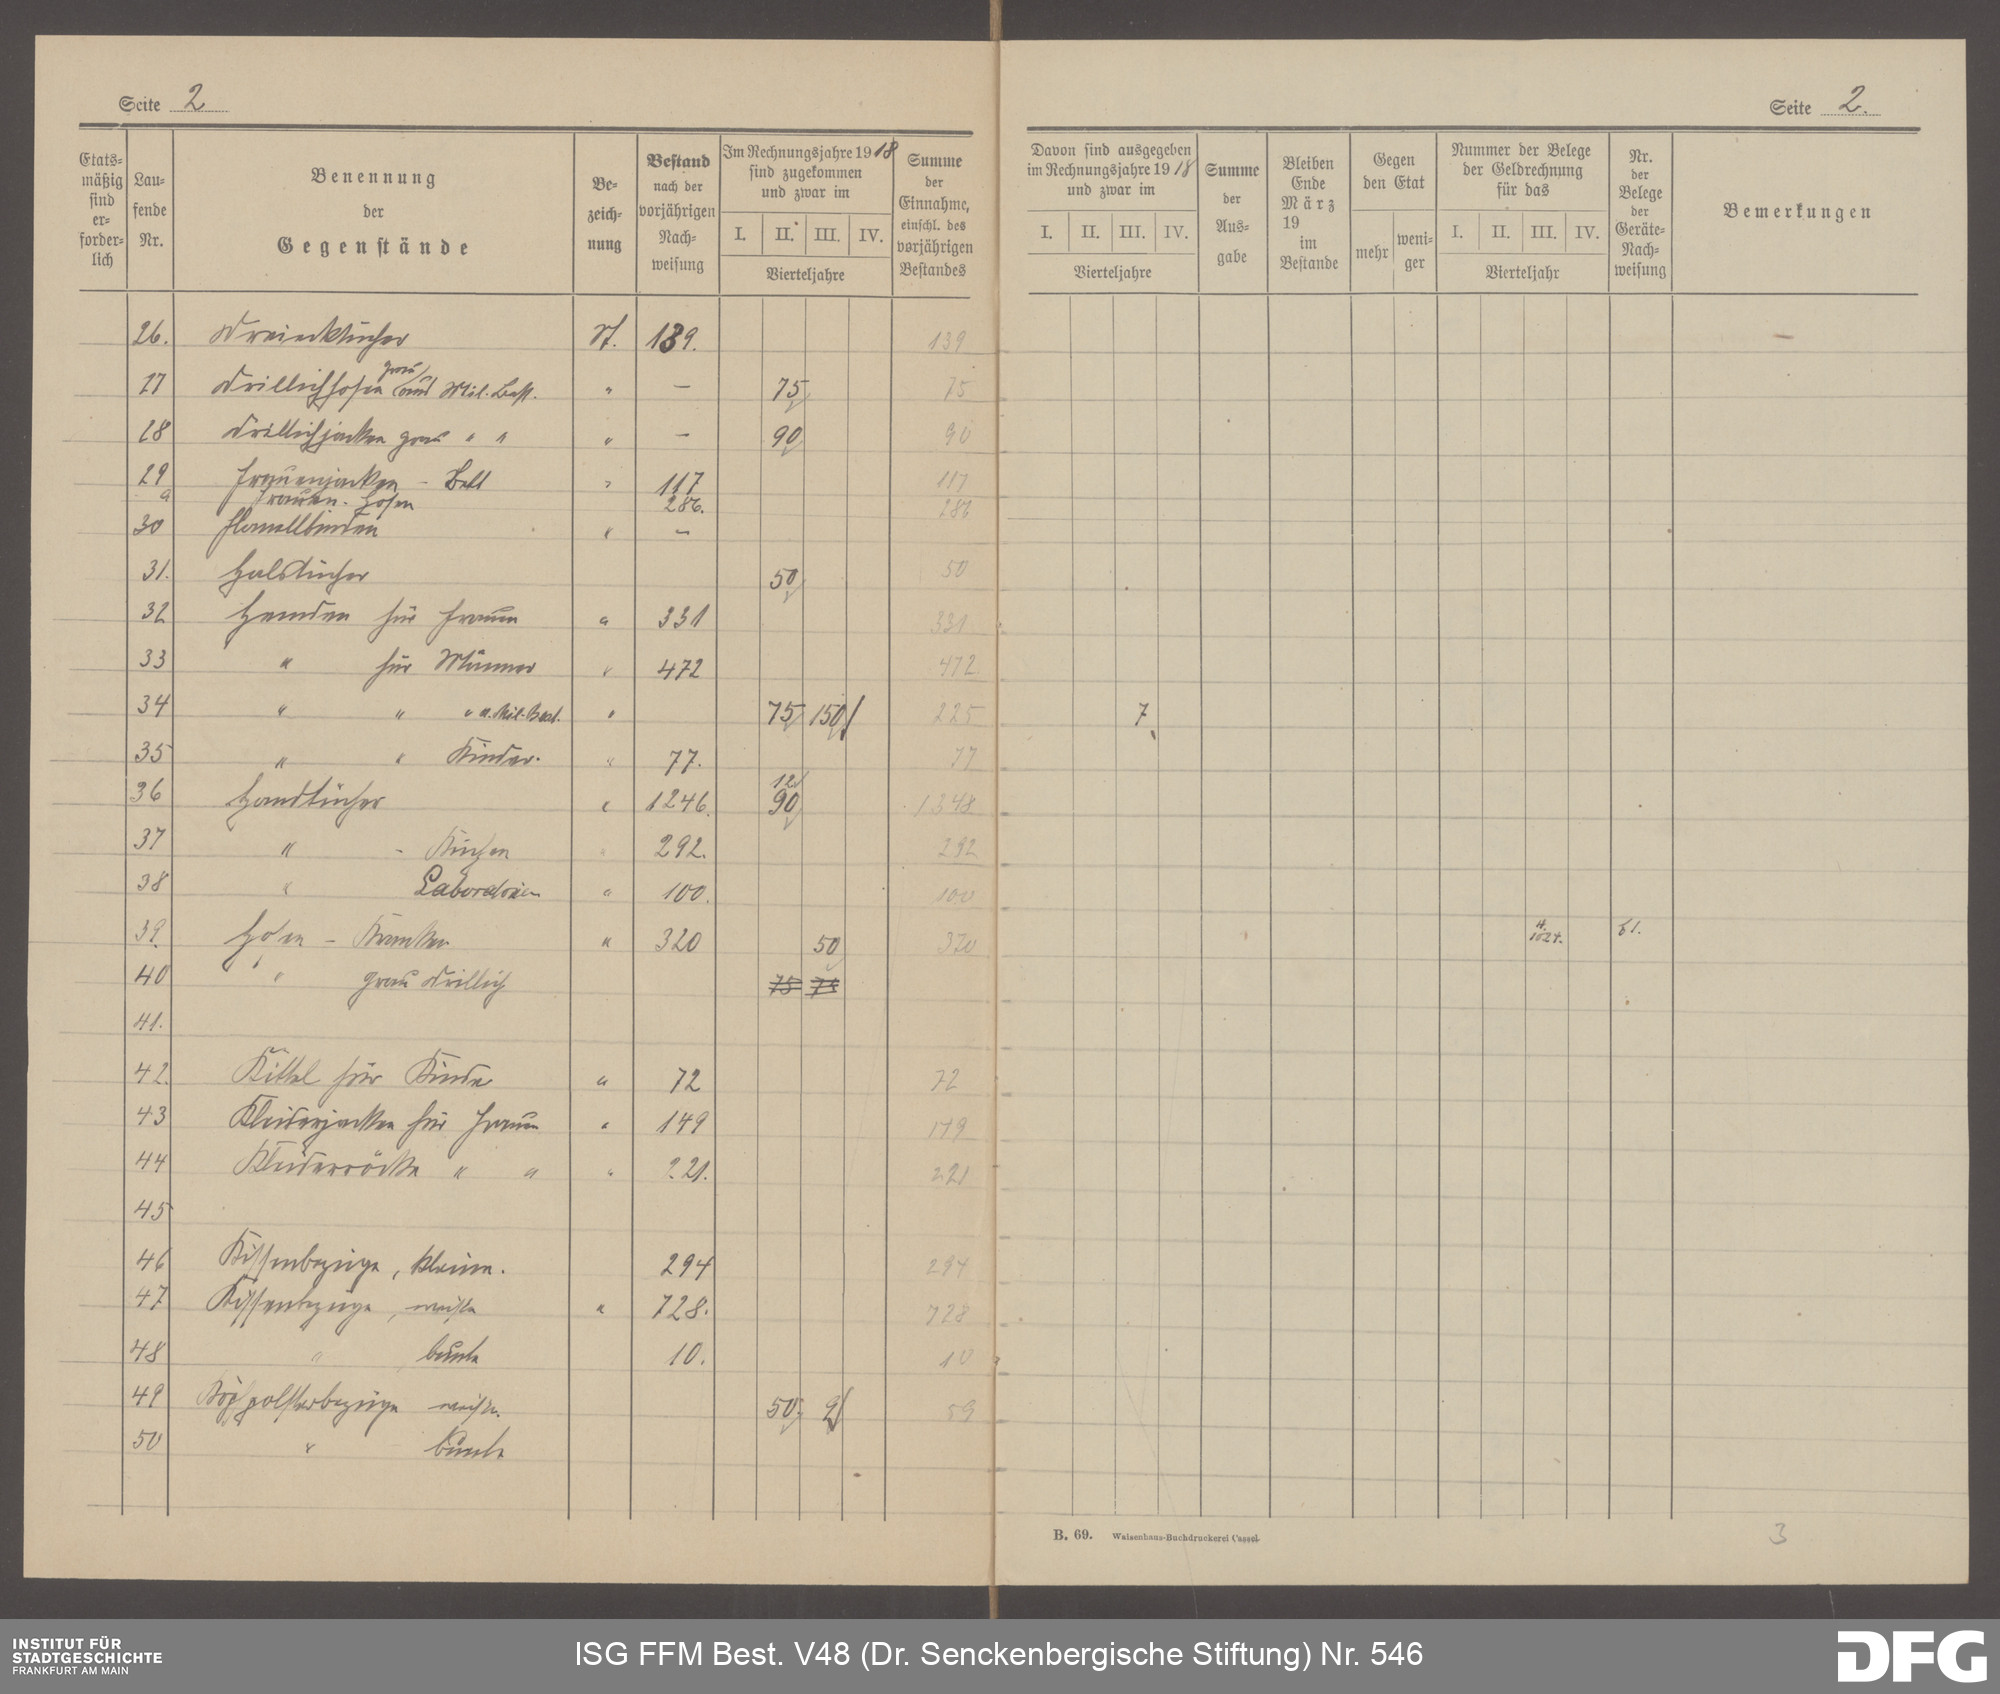 Seite 2
Etats-
mäßig
sind
er-
forder-
lich
Lau-
fende
Nr.
Benennung
der
Gegenstände
Be-
zeich-
nung
Bestand
nach der
vorjährigen
Nach-
weisung
Im Rechnungsjahre 1918
sind zugekommen
und zwar im
I. II. III. IV.
Vierteljahre
Summe
der
Einnahme,
einschl. des
vorjährigen
Bestandes
26. Dreiecktücher St. 139. 139
27 Drillichhosen grau aus Mil. Best. " — 75 75
28 Drillichjacken grau " " " — 90 90
29 Frauenjacken - Bett " 117 117
a Frauen-Hosen 286. 286
30 Flanellbinden " —
31. Halstücher 50 50
32 Hemden für Frauen " 331 331
33 " für Männer " 472 472
34 " " " a. Mil. Best. " 75 150 225 7
35 " " Kinder. " 77. 77
36 Handtücher " 1246. 12 90 1348
37 " - Küchen " 292. 292
38 " Laboratorien " 100. 100
39. Hosen - Kranken " 320 50 370 1024. 61.
40 " grau Drillich 75
41.
42. Kittel für Kinder " 72 72
43 Kleiderjacken für Frauen " 149 149
44 Kleiderröcke " " " 221. 221
45
46 Kissenbezüge, kleine. 294 294
47 Kissenbezüge, weiße " 728. 728
48 " bunte 10. 10
49 Kopfpolsterbezüge weiße. 50 9 59
50 " bunte
Seite 2.
Davon sind ausgegeben
im Rechnungsjahre 1918
und zwar im
I. II. III. IV.
Vierteljahre
Summe
der
Aus-
gabe
Bleiben
Ende
März
19
im
Bestande
Gegen
den Etat
mehr
weni-
ger
Nummer der Belege
der Geldrechnung
für das
I. II. III. IV.
Vierteljahr
Nr.
der
Belege
der
Geräte-
Nach-
weisung
Bemerkungen
B. 69. Waisenhaus-Buchdruckerei Cassel.
3
INSTITUT FÜR
STADTGESCHICHTE
FRANKFURT AM MAIN
ISG FFM Best. V48 (Dr. Senckenbergische Stiftung) Nr. 546
DFG